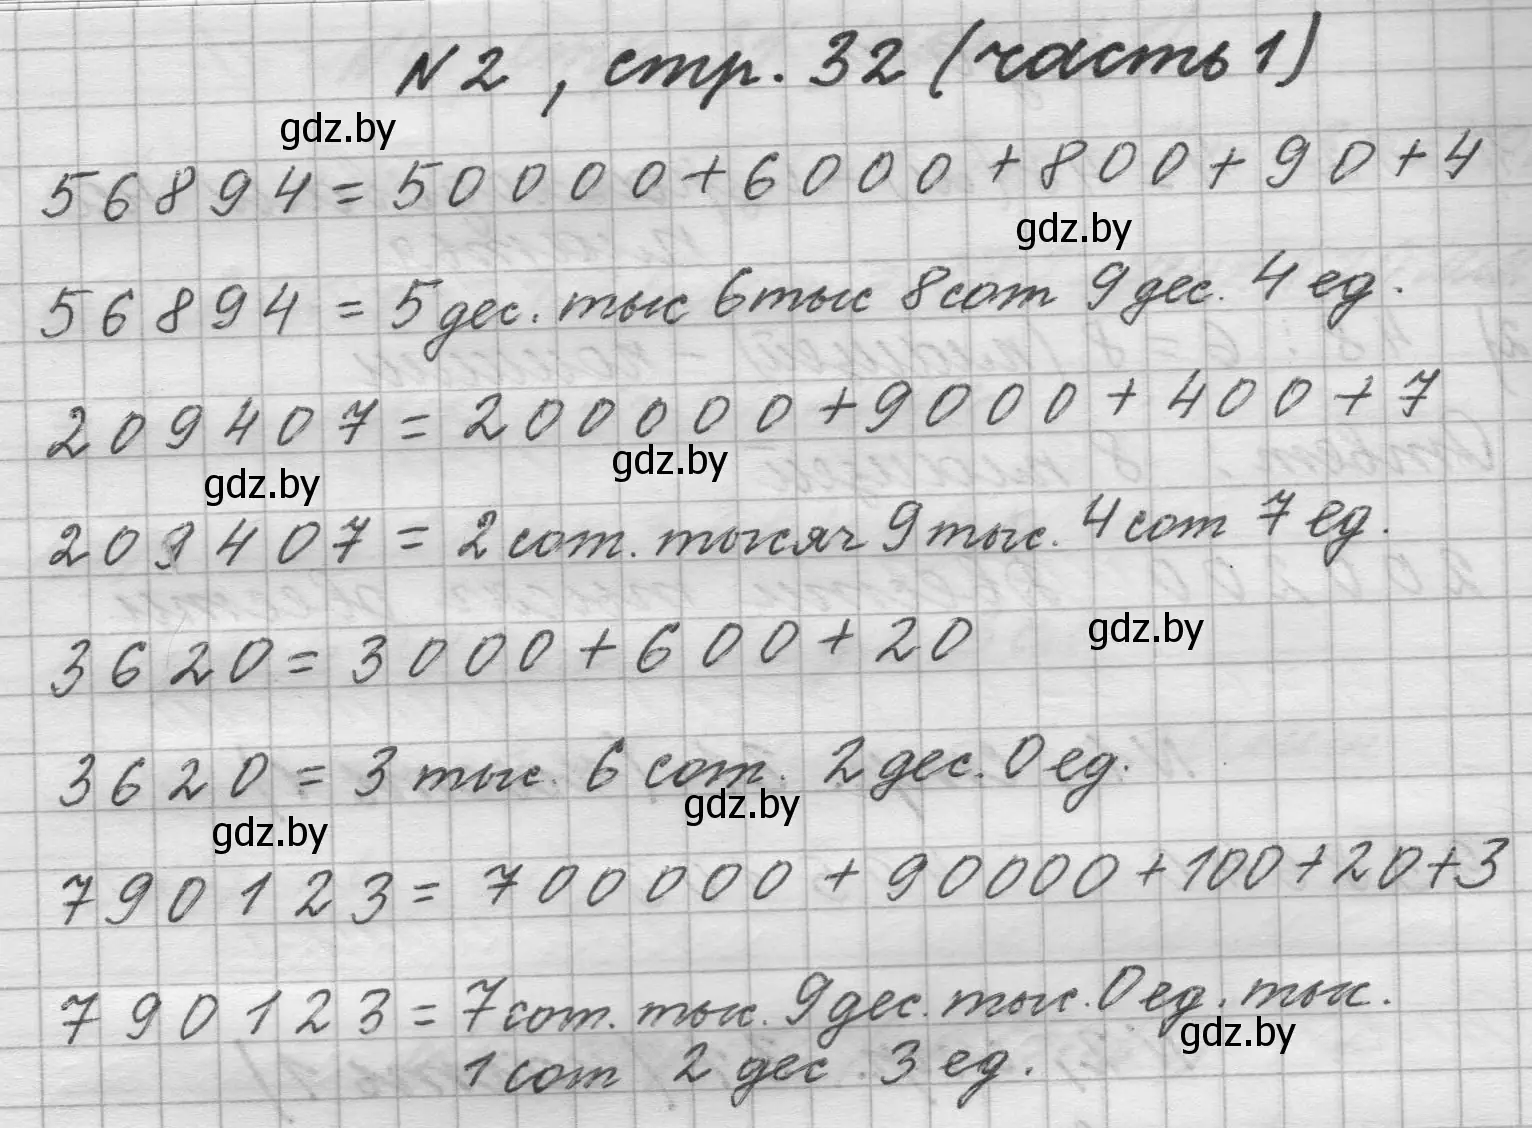 N 2, стр. 32 (часть 1)
gdz.by
56894 = 50000 + 6000 + 800 + 90 + 4
gdz.by
56894 = 5 дес. тыс 6 тыс 8 сот 9 дес. 4 ед.
209407 = 200000 + 9000 + 400 + 7
gdz.by
gdz.by
209407 = 2 сот. тысяч 9 тыс. 4 сот 7 ед.
3620 = 3000 + 600 + 20
gdz.by
3620 = 3 тыс. 6 сот. 2 дес. 0 ед.
gdz.by
gdz.by
790123 = 700000 + 90000 + 100 + 20 + 3
790123 = 7 сот. тыс. 9 дес. тыс. 0 ед. тыс.
gdz.by
1 сот 2 дес. 3 ед.